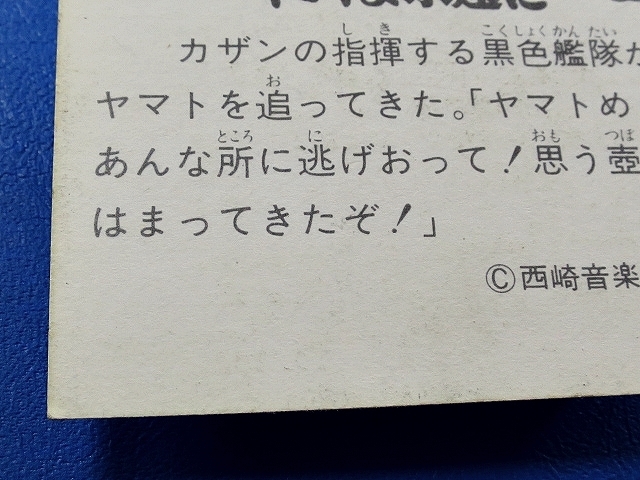 カザンの指揮する黒色艦隊が
ヤマトを追ってきた。「ヤマトめ
あんな所に逃げおって！思う壺
はまってきたぞ！」
©西崎音楽